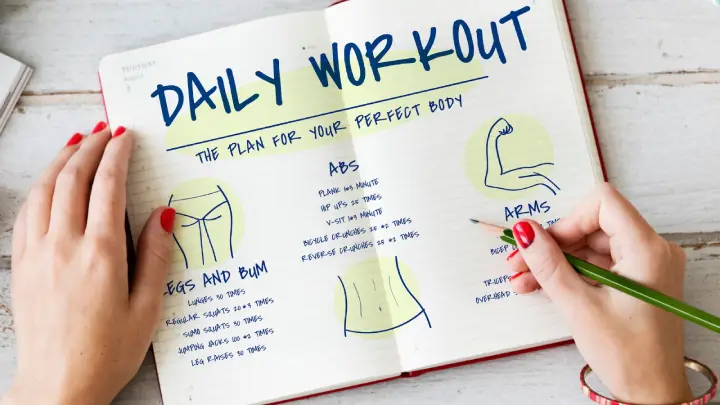 DAILY WORKOUT
THE PLAN FOR YOUR PERFECT BODY
LEGS AND BUM
LUNGES 30 TIMES
REGULAR SQUATS 20*3 TIMES
SUMO SQUATS 30 TIMES
JUMPING JACKS 100*2 TIMES
LEG RAISES 30 TIMES
ABS
PLANK 1*3 MINUTE
HIP UPS 25 TIMES
V-SIT 1*3 MINUTE
BICYCLE CRUNCHES 25*2 TIMES
REVERSE CRUNCHES 25*2 TIMES
ARMS
BICEP
TRICEPS
OVERHEAD